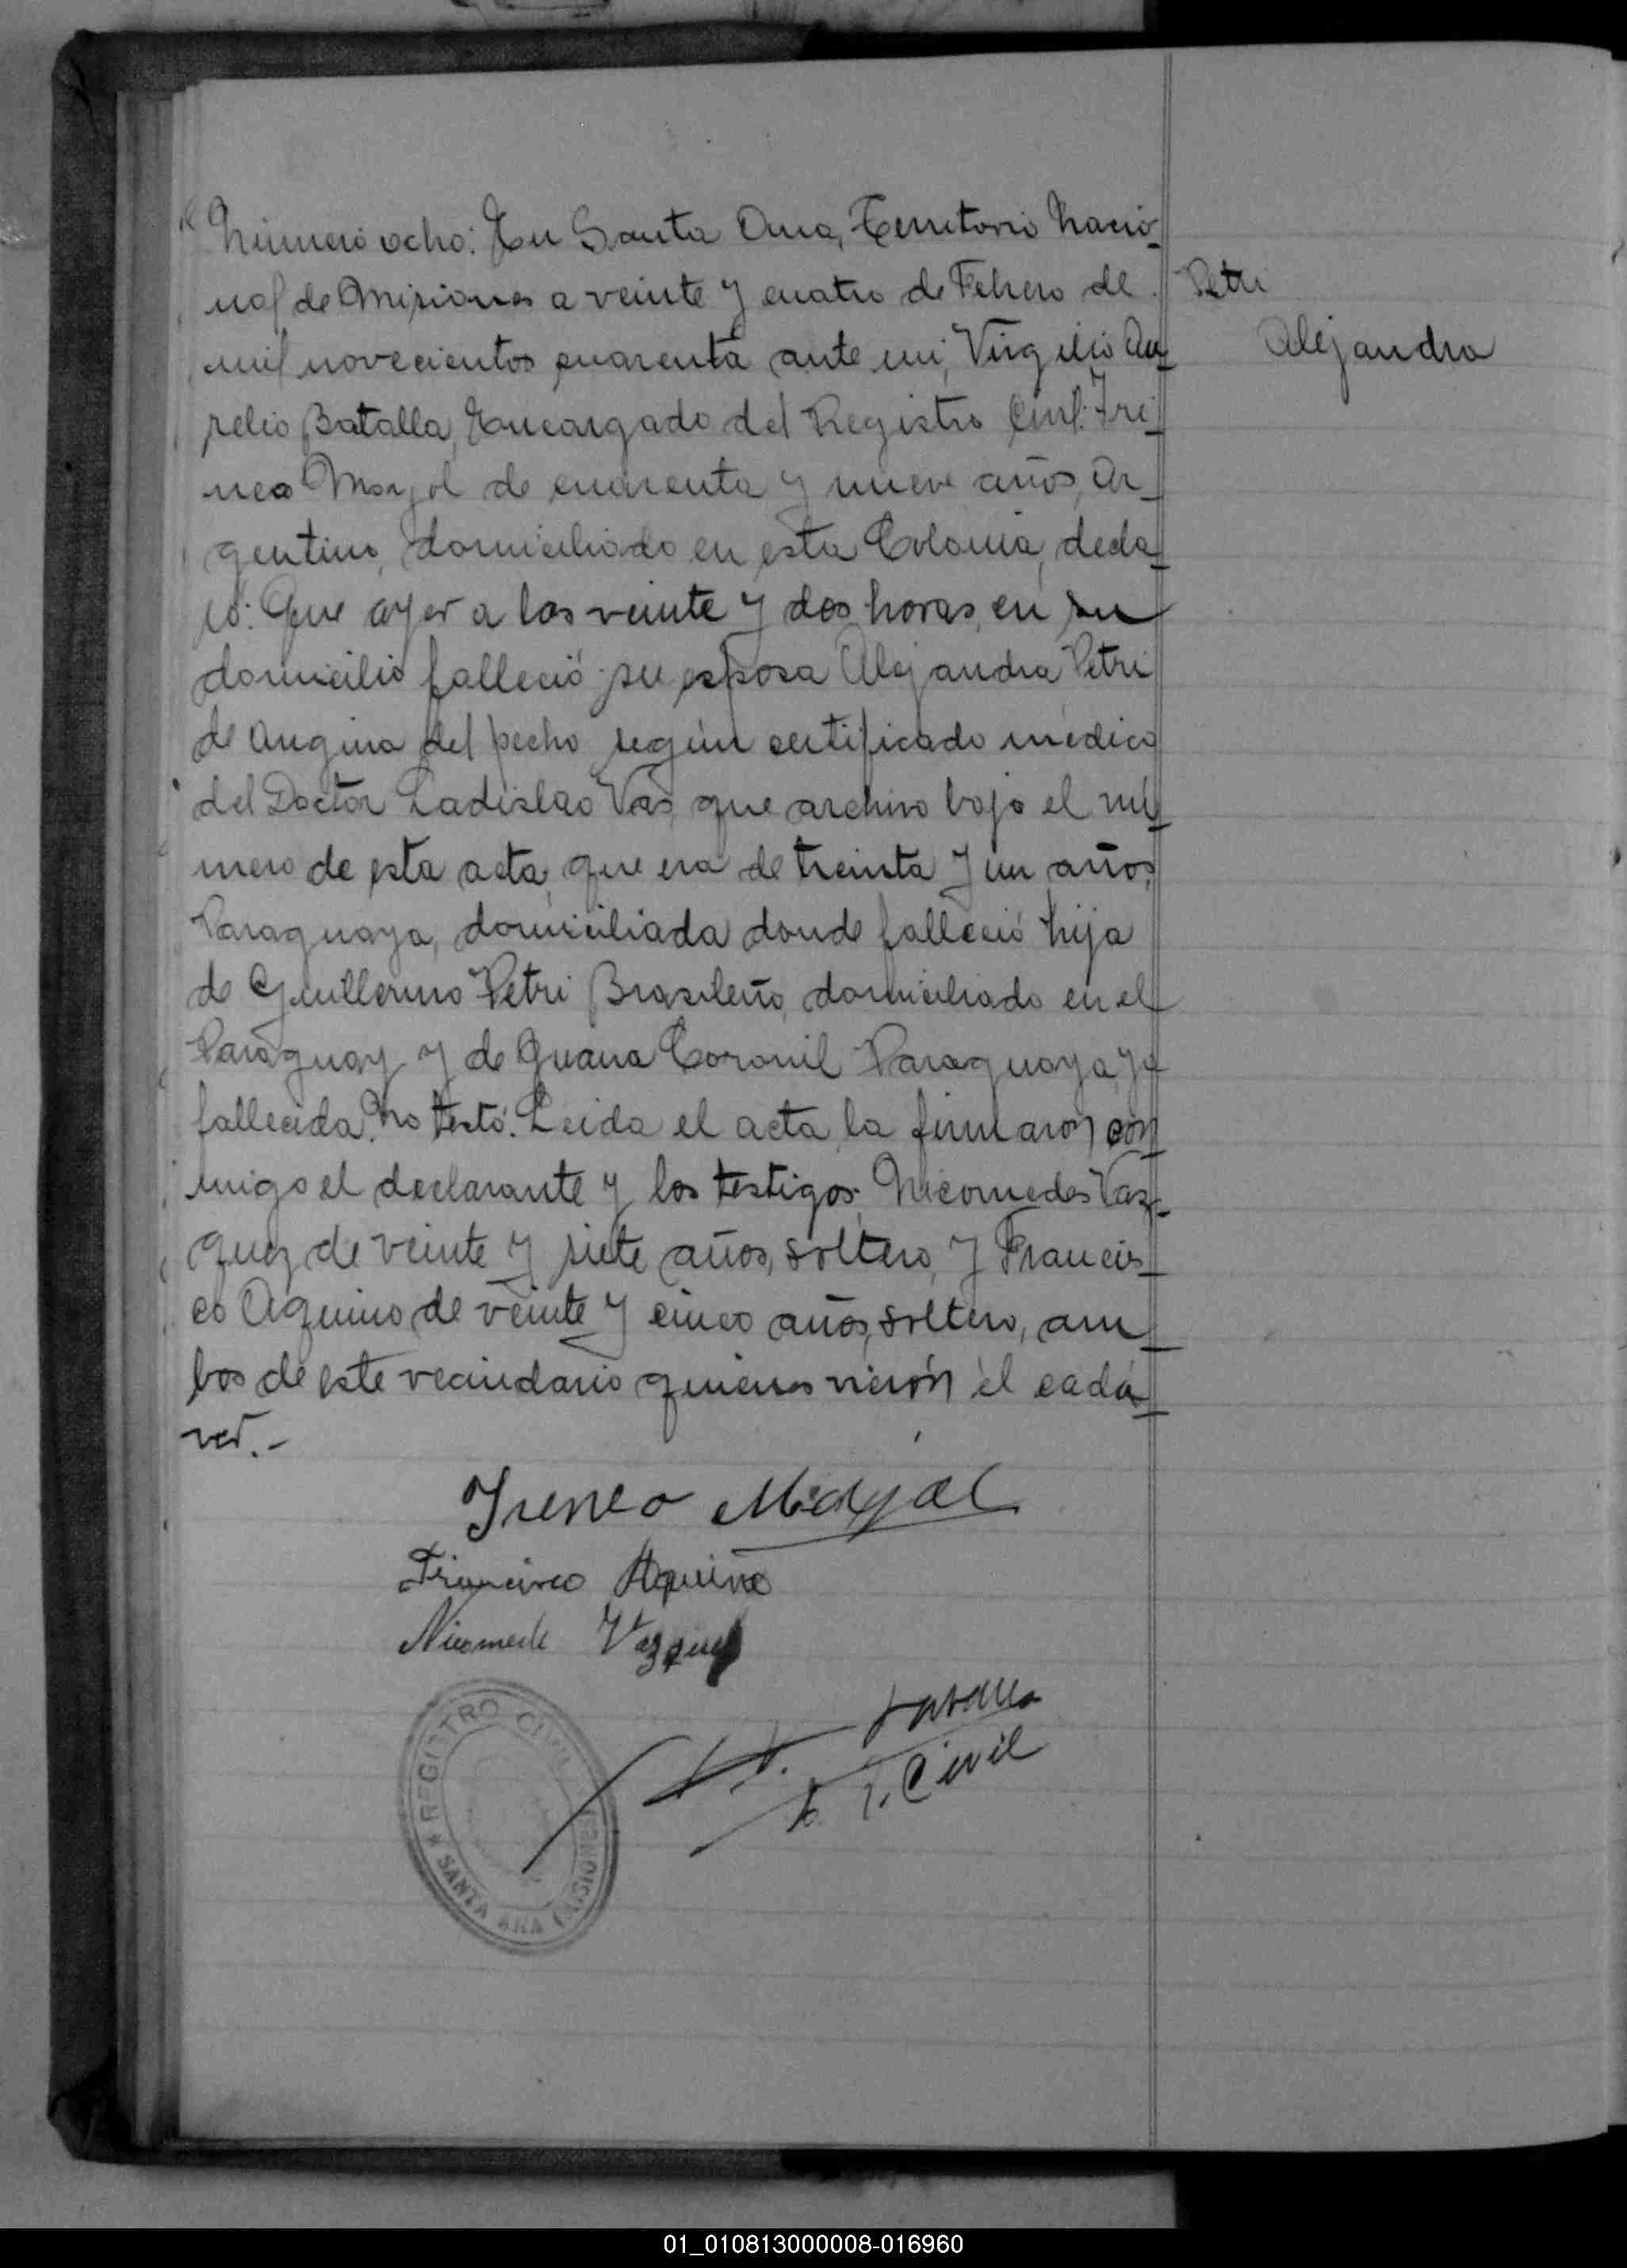 Número ocho: En Santa Ana, Territorio Nacio-
nal de Misiones a veinte y cuatro de Febrero de
mil novecientos cuarenta ante mi, Virgilio Au-
relio Batalla, Encargado del Registro Civil: Ire-
neo Mayol de cuarenta y nueve años, Ar-
gentino, domiciliado en esta Colonia, decla-
ró: Que ayer a las veinte y dos horas, en su
domicilio falleció su esposa Alejandra Petri
de angina del pecho según certificado médico
del Doctor Ladislao Vas, que archivo bajo el nú-
mero de esta acta, que era de treinta y un años,
Paraguaya, domiciliada donde falleció hija
de Guillermo Petri Brasileño, domiciliado en el
Paraguay y de Juana Coronil Paraguaya, ya
fallecida. No testó. Leida el acta, la firmaron con-
migo el declarante y los testigos: Nicomedes Vaz-
quez de veinte y siete años, soltero, y Francis-
co Aquino de veinte y cinco años, soltero, am-
bos de este vecindario quienes vieron el cadá-
ver.-
Petri
Alejandra
Ireneo Mayol
Francisco Aquino
Nicomede Vazquez
Batalla
Civil
REGISTRO CIVIL
* SANTA ANA (MISIONES)
01_010813000008-016960